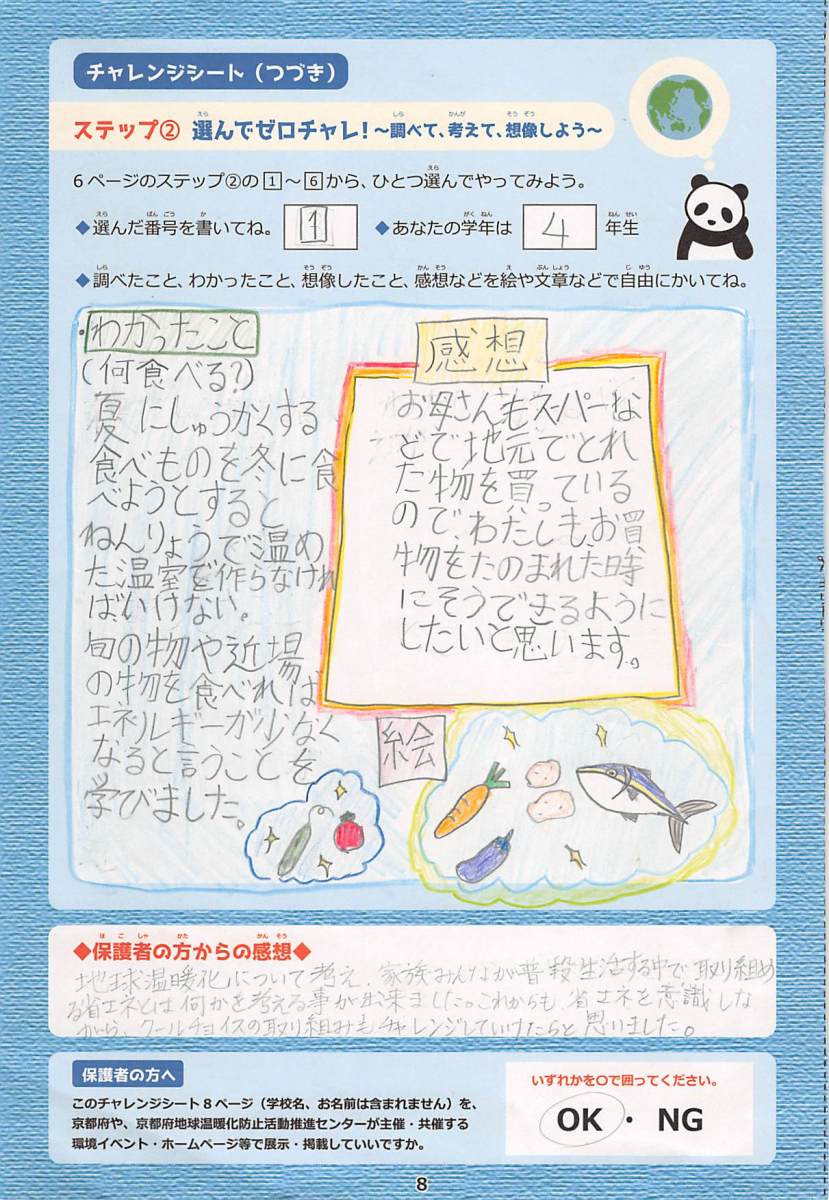 チャレンジシート（つづき）
ステップ② 選んでゼロチャレ！～調べて、考えて、想像しよう～
6ページのステップ②の1～6から、ひとつ選んでやってみよう。
◆選んだ番号を書いてね。 1 ◆あなたの学年は 4 年生
◆調べたこと、わかったこと、想像したこと、感想などを絵や文章などで自由にかいてね。
・わかったこと
(何食べる?)
夏にしゅうかくする
食べものを冬に食
べようとすると
ねんりょうで温め
た温室を作らなけれ
ばいけない。
旬の物や近場
の物を食べれば
エネルギーが少なく
なると言うことを
学びました。
感想
お母さんもスーパーな
どで地元でとれ
た物を買っている
ので、わたしもお買
物をたのまれた時
にそうできるように
したいと思います。
絵
◆保護者の方からの感想◆
地球温暖化について考え、家族みんなが普段生活する中で取り組め
る省エネとは何かを考える事が出来ました。これからも、省エネを意識しな
がら、クールチョイスの取り組みもチャレンジしていけたらと思いました。
保護者の方へ
このチャレンジシート8ページ（学校名、お名前は含まれません）を、
京都府や、京都府地球温暖化防止活動推進センターが主催・共催する
環境イベント・ホームページ等で展示・掲載していいですか。
いずれかを○で囲ってください。
OK・NG
8